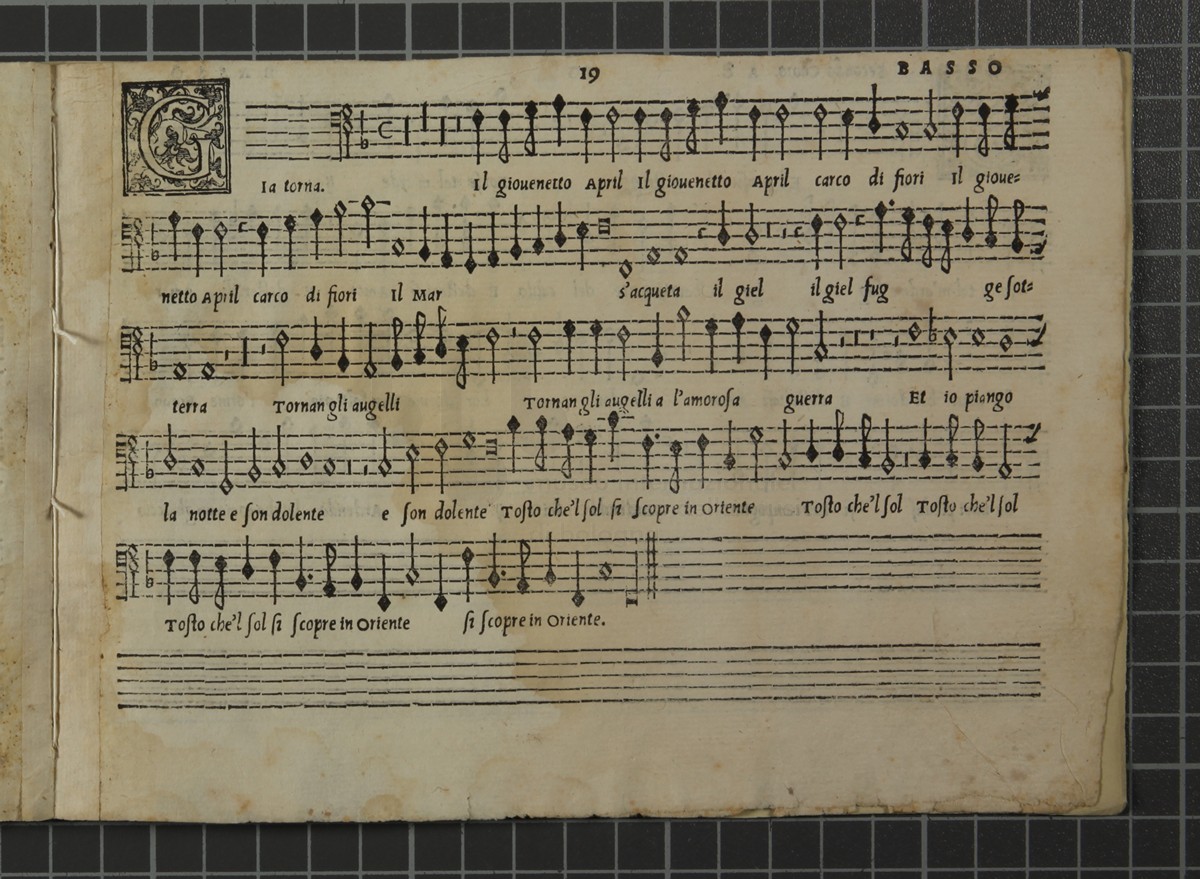 19
BASSO
GIa torna. Il giouenetto April Il giouenetto April carco di fiori Il gioue=
netto April carco di fiori Il Mar s'acqueta il giel il giel fug ge sot=
terra Tornan gli augelli Tornan gli augelli a l'amorosa guerra Et io piango
la notte e son dolente e son dolente Tosto che'l sol si scopre in Oriente Tosto che'l sol Tosto che'l sol
Tosto che'l sol si scopre in Oriente si scopre in Oriente.